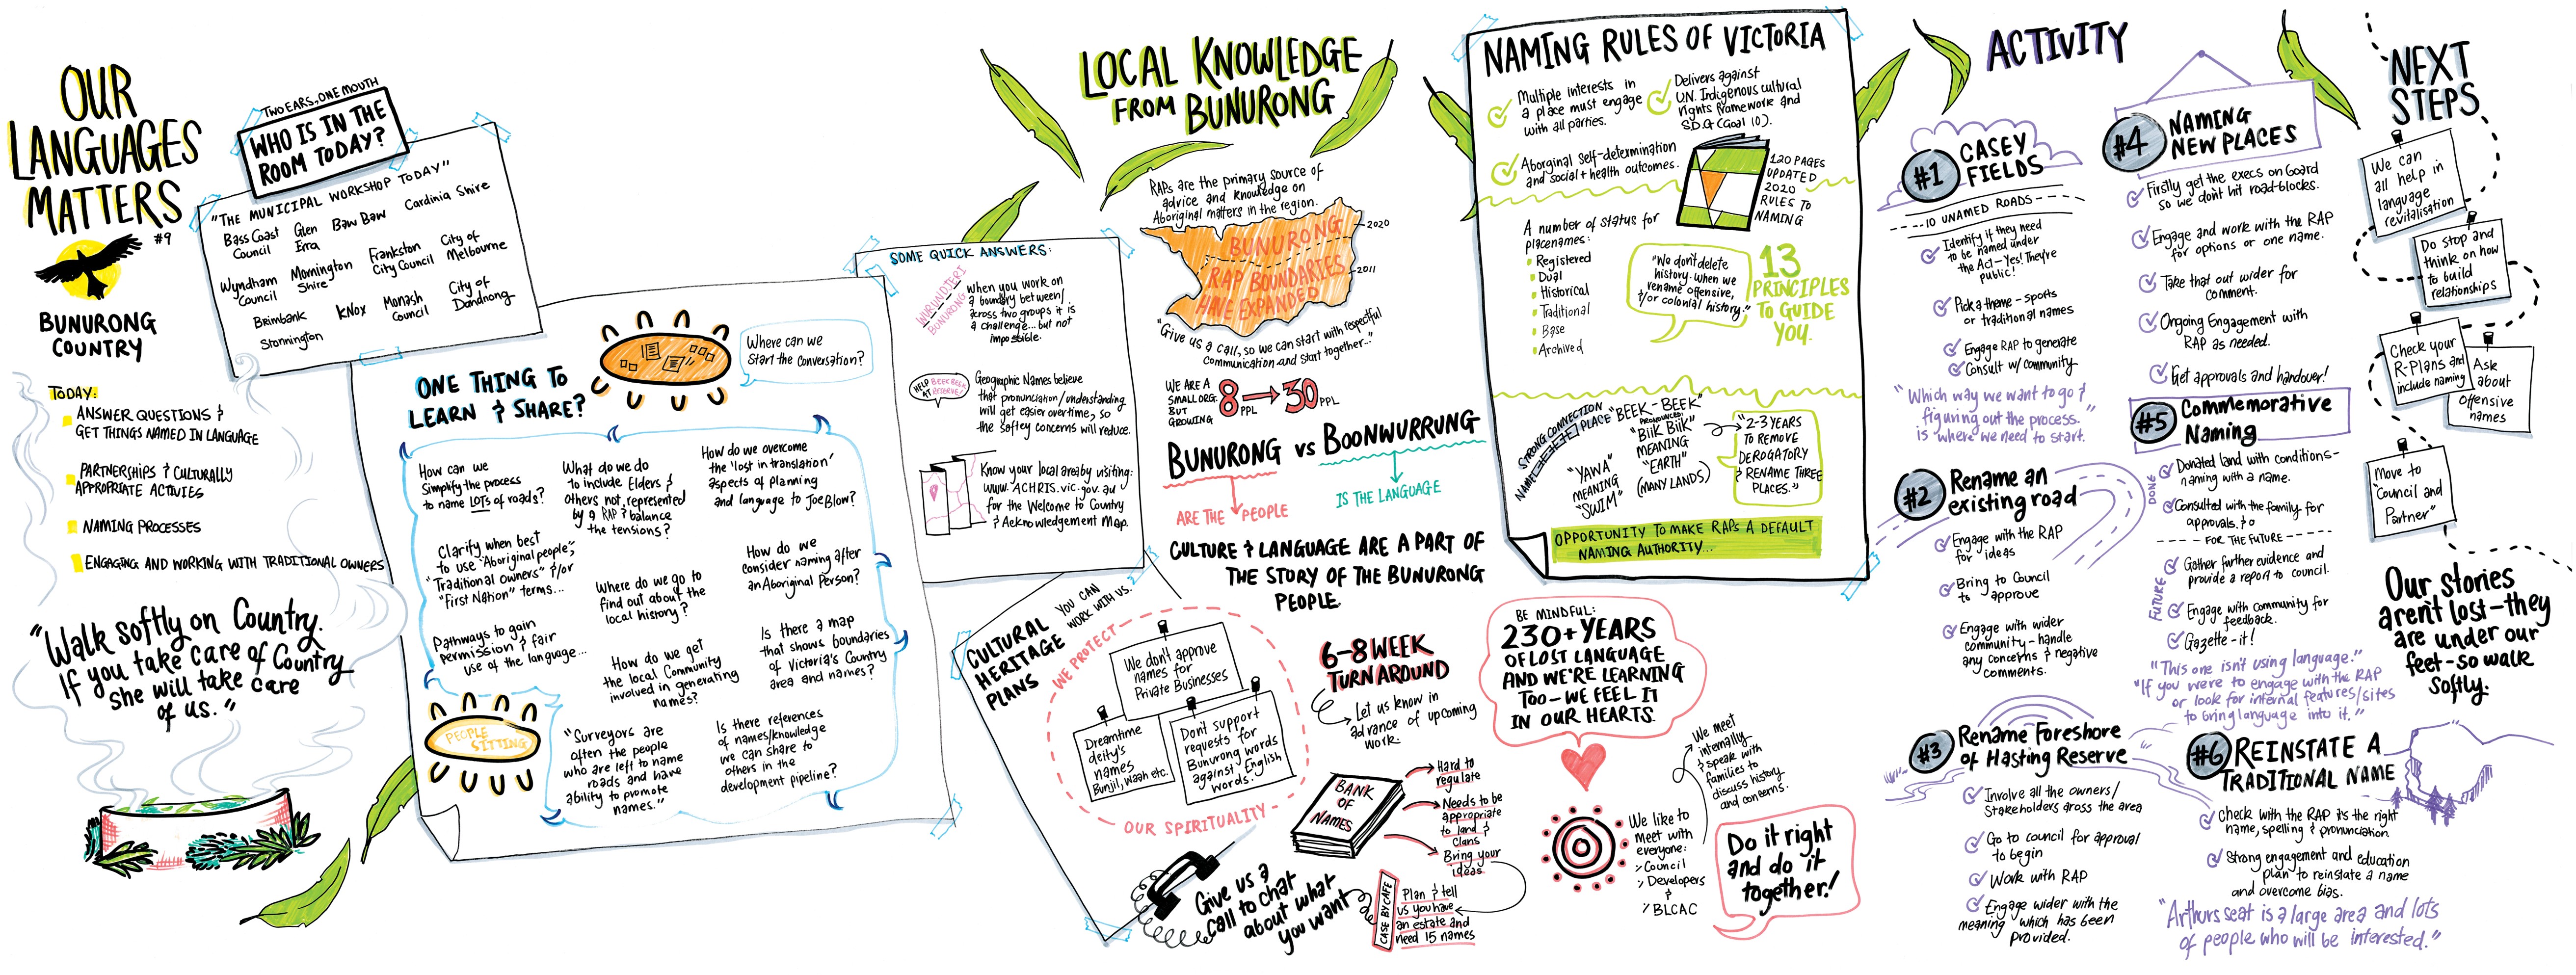 OUR
LANGUAGES
MATTERS
#9
BUNURONG
COUNTRY
TODAY:
ANSWER QUESTIONS &
GET THINGS NAMED IN LANGUAGE
PARTNERSHIPS & CULTURALLY
APPROPRIATE ACTIVIES
NAMING PROCESSES
ENGAGING AND WORKING WITH TRADITIONAL OWNERS
"Walk softly on Country.
If you take care of Country
She will take care
of us."
TWO EARS, ONE MOUTH
WHO IS IN THE
ROOM TODAY?
"THE MUNICIPAL WORKSHOP TODAY"
Bass Coast
Council
Glen
Eira
Baw Baw
Cardinia Shire
Wyndham
Council
Mornington
Shire
Frankston
City Council
City of
Melbourne
Brimbank
Knox
Monash
Council
City of
Dandnong
Stonnington
ONE THING TO
LEARN & SHARE?
Where can we
Start the conversation?
How can we
Simplify the process
to name LOTS of roads?
What do we do
to include Elders &
others not represented
by a RAP & balance
the tensions?
How do we overcome
the 'lost in translation'
aspects of planning
and language to Joe Blow?
Clarify when best
to use "Aboriginal people",
"Traditional owners" &/or
"First Nation" terms...
Where do we go to
find out about the
local history?
How do we
consider naming after
an Aboriginal Person?
Pathways to gain
permission & fair
use of the language...
How do we get
the local Community
involved in generating
names?
Is there a map
that shows boundaries
of Victoria's Country
area and names?
PEOPLE
SITTING
"Surveyors are
often the people
who are left to name
roads and have
ability to promote
names."
Is there references
of names/knowledge
we can share to
others in the
development pipeline?
SOME QUICK ANSWERS:
WURUNDJERI
BUNURONG
When you work on
a boundry between/
across two groups it is
a challenge... but not
impossible.
HELP BEEK BEEK
AT RESERVE!
Geographic Names believe
that pronunciation/understanding
will get easier overtime, so
the softey concerns will reduce.
Know your local area by visiting:
www.ACHRIS.vic.gov.au
for the Welcome to Country
& Acknowledgement Map.
LOCAL KNOWLEDGE
FROM BUNURONG
RAPs are the primary source of
advice and knowledge on
Aboriginal matters in the region.
BUNURONG
RAP BOUNDARIES
HAVE EXPANDED
2020
2011
"Give us a call, so we can start with respectful
communication and start together..."
WE ARE A
SMALL ORG.
BUT
GROWING
8 PPL → 30 PPL
BUNURONG vs BOONWURRUNG
ARE THE PEOPLE
IS THE LANGUAGE
CULTURE & LANGUAGE ARE A PART OF
THE STORY OF THE BUNURONG
PEOPLE.
CULTURAL
HERITAGE
PLANS
YOU CAN
WORK WITH US.
WE PROTECT
We don't approve
names for
Private Businesses
Dreamtime
deity's
names
Bunjil, Waah etc.
Don't support
requests for
Bunurong words
against English
words.
OUR SPIRITUALITY
Give us a
call to chat
about what
you want
6-8 WEEK
TURNAROUND
Let us know in
advance of upcoming
work.
BANK
OF
NAMES
Hard to
regulate
Needs to be
appropriate
to land &
Clans
Bring your
ideas
CASE BY CAFE
Plan & tell
us you have
an estate and
need 15 names
BE MINDFUL:
230+ YEARS
OF LOST LANGUAGE
AND WE'RE LEARNING
TOO - WE FEEL IT
IN OUR HEARTS.
We meet
internally
& speak with
families to
discuss history
and concerns.
We like to
meet with
everyone:
Council
Developers
&
BLCAC
Do it right
and do it
together!
NAMING RULES OF VICTORIA
Multiple interests in
a place must engage
with all parties.
Delivers against
U.N. Indigenous cultural
rights framework and
S.D.G (Goal 10).
Aboriginal self-determination
and social + health outcomes.
120 PAGES
UPDATED
2020
RULES TO
NAMING
A number of status for
placenames:
Registered
Dual
Historical
Traditional
Base
Archived
"We don't delete
history when we
rename offensive,
&/or colonial history."
13
PRINCIPLES
TO GUIDE
YOU.
STRONG CONNECTION
NAME PLACE
"BEEK-BEEK"
PRONOUNCED:
"BiiK BiiK"
MEANING
"EARTH"
(MANY LANDS)
"YAWA"
MEANING
"SWIM"
"2-3 YEARS
TO REMOVE
DEROGATORY
& RENAME THREE
PLACES."
OPPORTUNITY TO MAKE RAPs A DEFAULT
NAMING AUTHORITY...
ACTIVITY
#1 CASEY
FIELDS
10 UNAMED ROADS
Identify if they need
to be named under
the Act-Yes! They're
public!
Pick a theme - sports
or traditional names
Engage RAP to generate
Consult w/ community
"Which way we want to go &
figuring out the process.
is where we need to start."
#2 Rename an
existing road
Engage with the RAP
for ideas
Bring to Council
to approve
Engage with wider
community - handle
any concerns & negative
comments.
#3 Rename Foreshore
of Hasting Reserve
Involve all the owners/
Stakeholders aross the area
Go to council for approval
to begin
Work with RAP
Engage wider with the
meaning which has been
provided.
#4 NAMING
NEW PLACES
Firstly get the execs on Board
so we dont hit road-blocks.
Engage and work with the RAP
for options or one name.
Take that out wider for
comment.
Ongoing Engagement with
RAP as needed.
Get approvals and handover!
#5 Commemorative
Naming
DONE
Donated land with conditions-
naming with a name.
Consulted with the family for
approvals.
FOR THE FUTURE
FUTURE
Gather further evidence and
provide a report to council.
Engage with community for
feedback.
Gazette-it!
"This one isn't using language."
"If you were to engage with the RAP
or look for internal features/sites
to bring language into it."
#6 REINSTATE A
TRADITIONAL NAME
Check with the RAP it's the right
name, spelling & pronunciation.
Strong engagement and education
plan to reinstate a name
and overcome bias.
"Arthurs seat is a large area and lots
of people who will be interested."
NEXT
STEPS
We can
all help in
language
revitalisation
Do stop and
think on how
to build
relationships
Check your
R-Plans and
include naming
Ask
about
Offensive
names
Move to
"Council and
Partner"
Our stories
aren't lost-they
are under our
feet-so walk
softly.